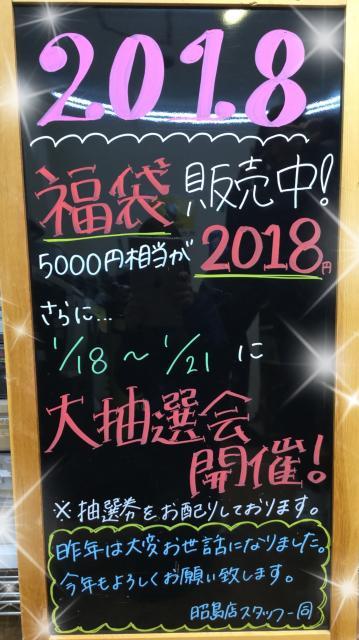 2018
福袋 販売中!
5000円相当が 2018円
さらに...
1/18~1/21 に
大抽選会
開催!
※抽選券をお配りしております。
昨年は大変お世話になりました。
今年もよろしくお願い致します。
昭島店スタッフ一同